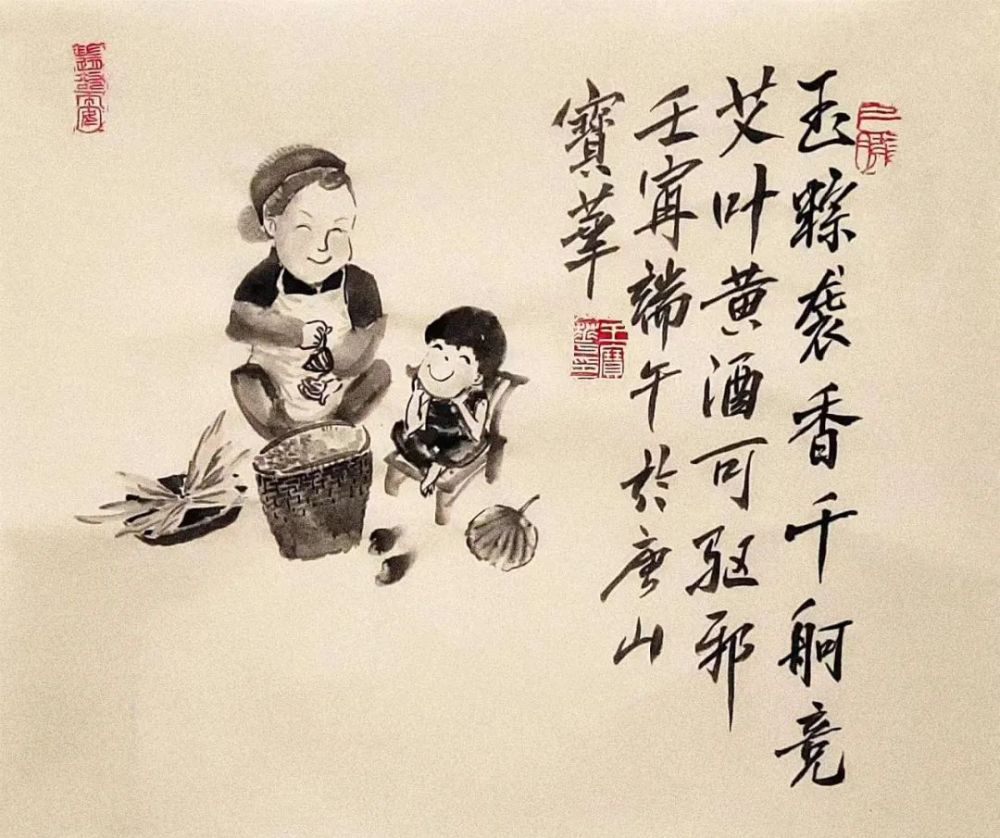 玉粽袭香千舸竞
艾叶黄酒可驱邪
壬寅端午於唐山
寳華
王寳華印